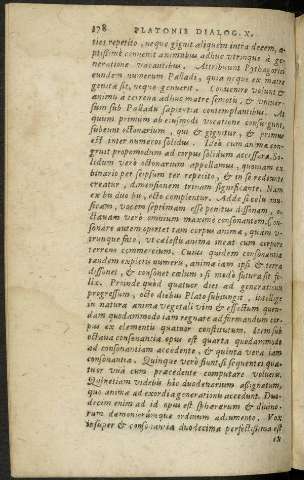 378 PLATONIS DIALOG. X.
ties repetito, neque gignit aliquem intra decem, a-
ptissimè convenit animabus adhuc utrinque à ge-
neratione vacantibus. Attribuunt Pythagorici
eundem numerum Palladi, quia neque ex matre
genita sit, neque genuerit. Convenire volunt &
animæ à terrena adhuc matre semotæ, & univer-
sum sub Palladis sapientia contemplantibus. At
quum primum ab ejusmodi vacatione consurgunt,
subeunt octonarium, qui & gignitur, & primus
est inter numeros solidus. Ideo cum anima con-
gruit propemodum ad corpus solidum accessura. So-
lidum verò octonarium appellamus, quoniam ex
binario per seipsum ter repetito, & in se redeunte
creatur, dimensionem trinam significante. Nam
ex bis duo bis, octo complentur. Adde si cœlu mu-
sicam, vocem septimam esse penitus dissonam, o-
ctavam verò omnium maximè consonantem. Con-
sonare autem oportet tam corpus anima, quàm v-
trunque suo, ut cælestis anima ineat cum corpore
terreno commercium. Cujus quidem consonantia
tandem expletis numeris, anima jam ipsi & terræ
dissonet, & consonet cælum: si modò futura sit fe-
lix. Proinde quòd quatuor dies ad generationis
progressum, octo diebus Plato subjungit, intellige
in natura animæ vegetali vim & effectum quen-
dam quodammodo jam regnare ad formandum cor-
pus ex elementis quatuor constitutum. Item sub
octava consonantia epus est quarta quodammodo
ad consonantiam accedente, & quinta vera jam
consonantia. Quinque verò fiunt, si sequentes qua-
tuor unà cum præcedente computare volueris.
Quinetiam videbis hîc duodenarium assignatum,
quo anima ad exordia generationis accedunt. Duo-
decim enim ad id opus est sphærarum & divino-
rum dæmonumque ordinum adjumento. Vox
insuper & consonantia duodecima perfectissima est
ex